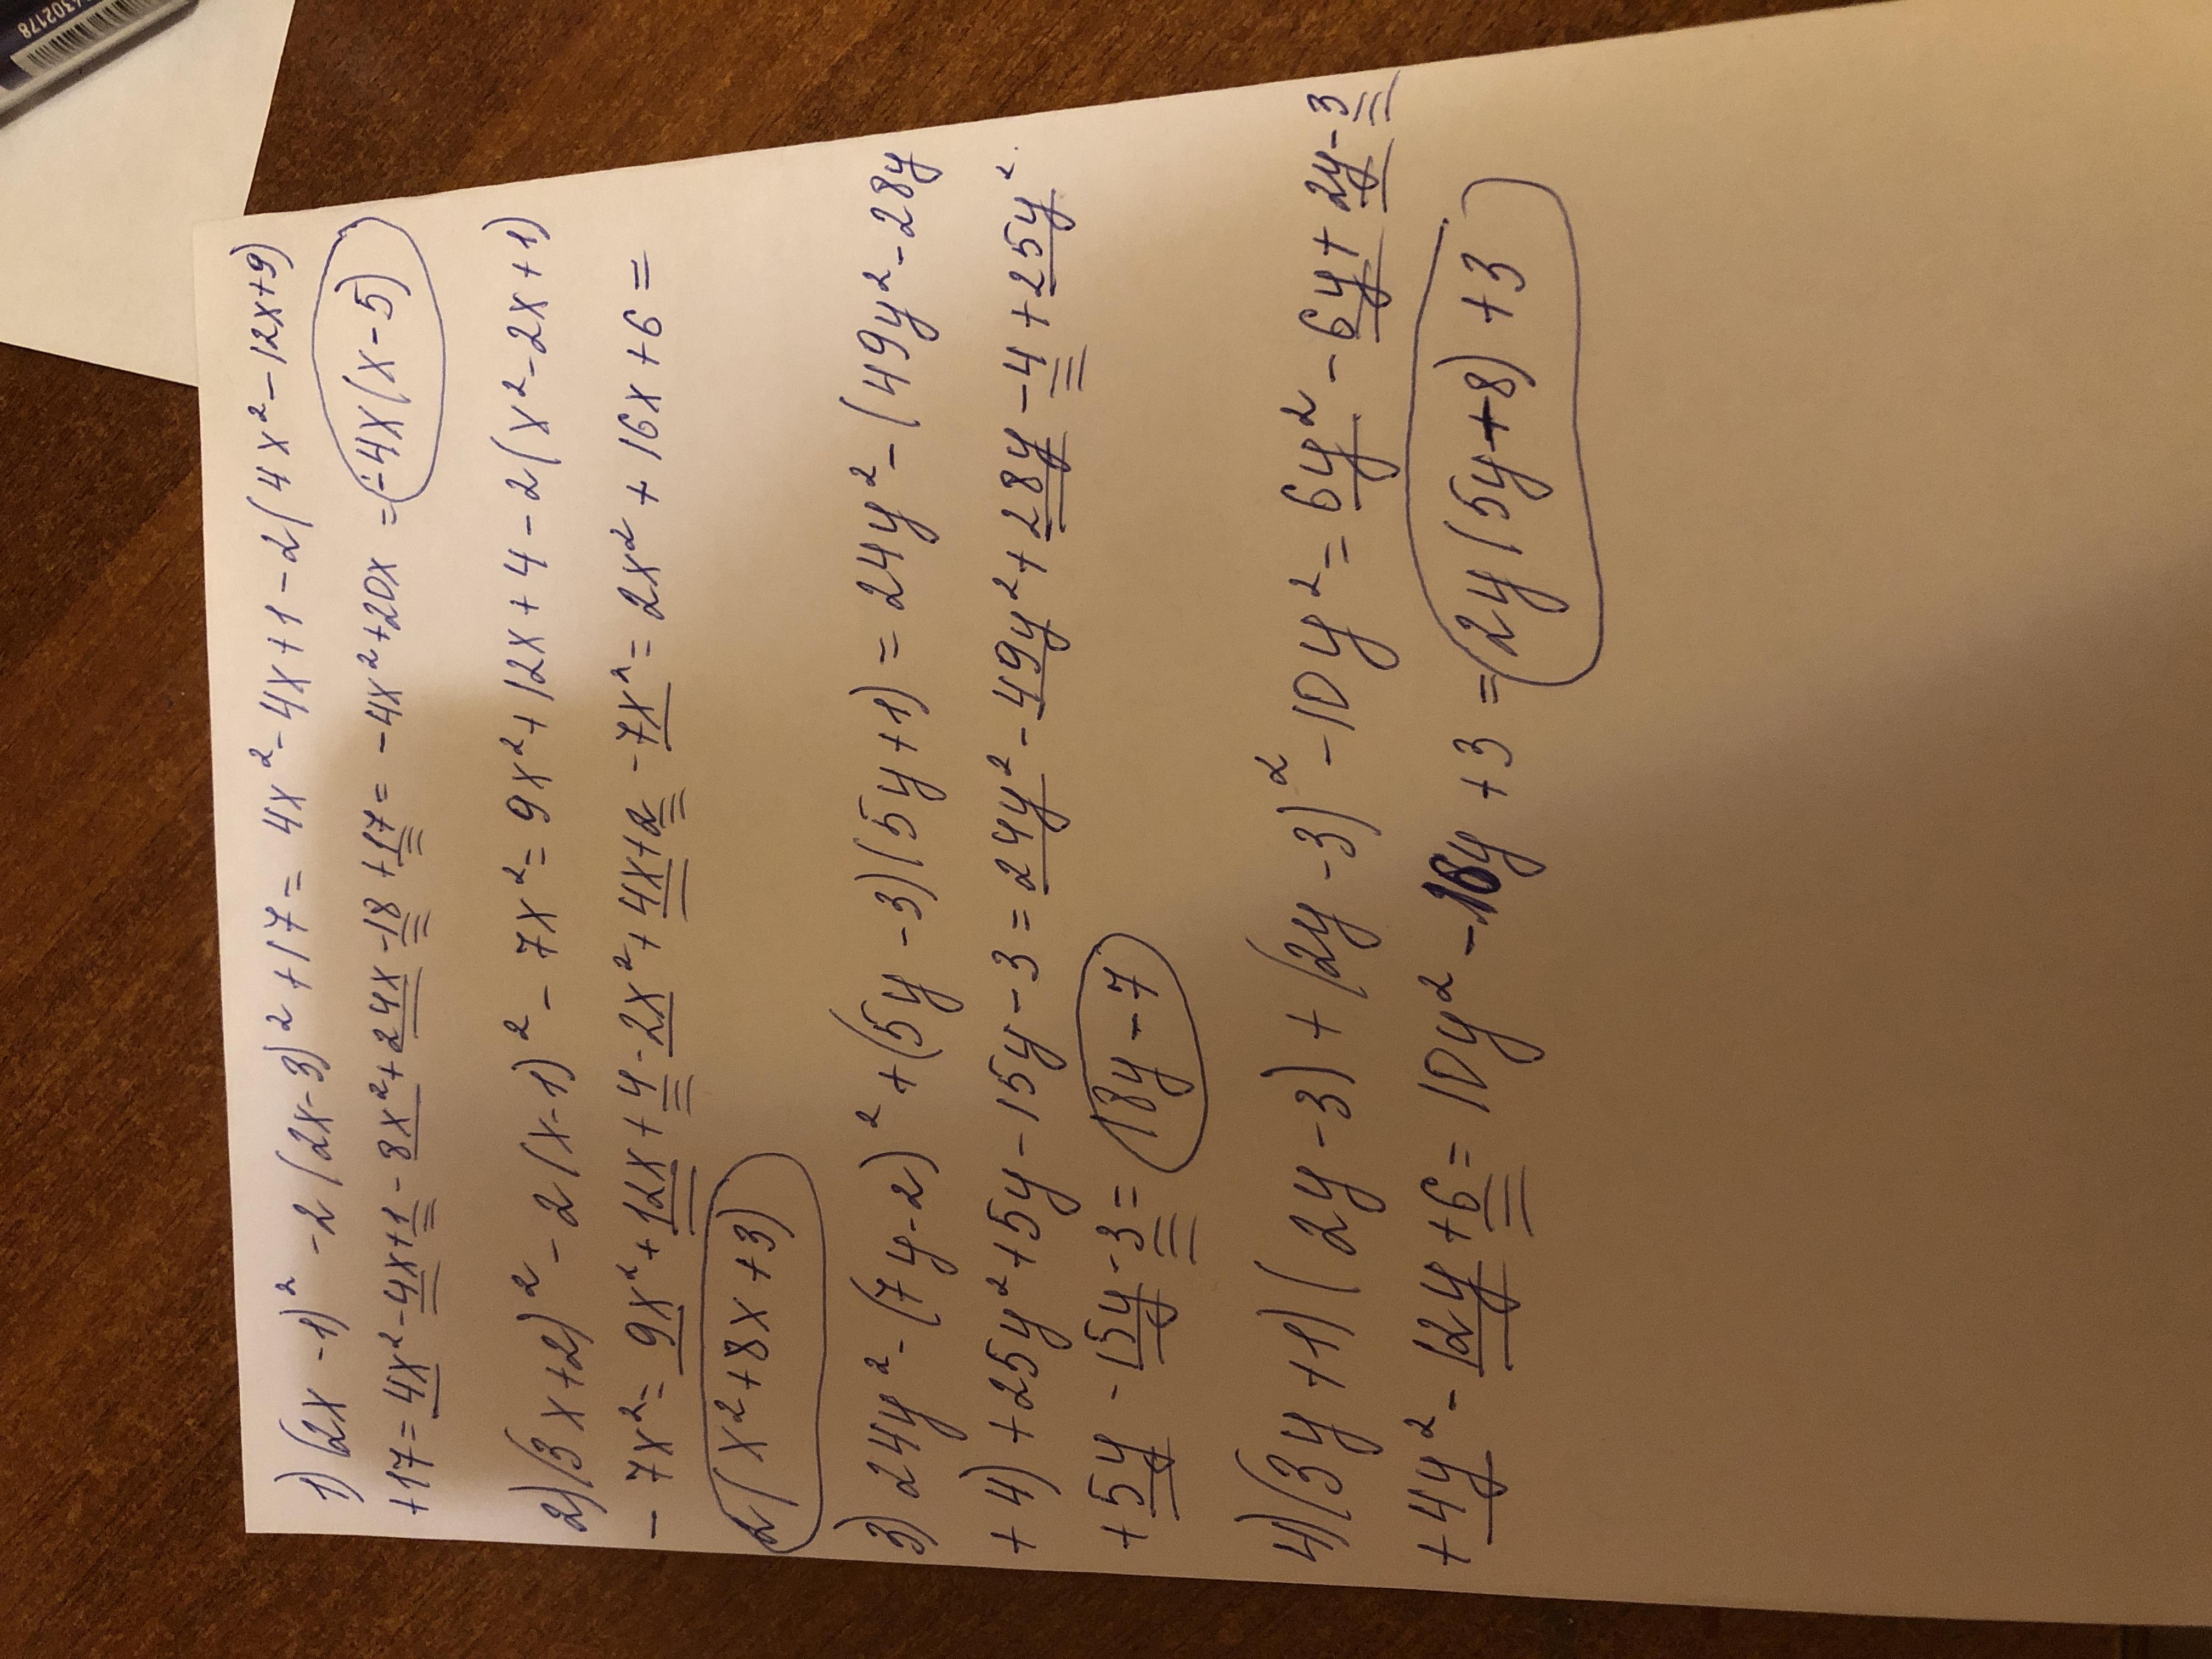 1) (2x-1)² - 2(2x-3)² + 17 = 4x² - 4x + 1 - 2(4x² - 12x + 9)
+ 17 = 4x² - 4x + 1 - 8x² + 24x - 18 + 17 = -4x² + 20x = -4x(x-5)
2) (3x+2)² - 2(x-1)² - 7x² = 9x² + 12x + 4 - 2(x² - 2x + 1)
- 7x² = 9x² + 12x + 4 - 2x² + 4x + 2 - 7x² = 2x² + 16x + 6 =
2(x² + 8x + 3)
3) 24y² - (7y-2)² + (5y-3)(5y+1) = 24y² - (49y² - 28y
+ 4) + 25y² + 5y - 15y - 3 = 24y² - 49y² + 28y - 4 + 25y²
+ 5y - 15y - 3 = 18y - 7
4) (3y+1)(2y-3) + (2y-3)² - 10y² = 6y² - 6y + 2y - 3
+ 4y² - 12y + 6 = 10y² - 16y + 3 = 2y(5y+8) + 3
4302178